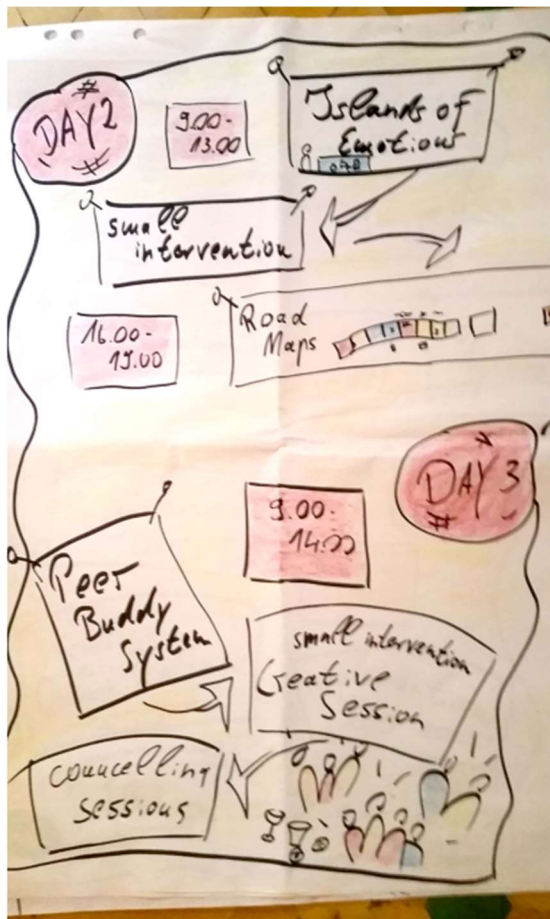 DAY 2
9.00-
13.00
Islands of
Emotions
small
intervention
16.00-
19.00
Road
Maps
DAY 3
9.00-
14.00
Peer
Buddy
System
small intervention
Creative
Session
councelling
sessions